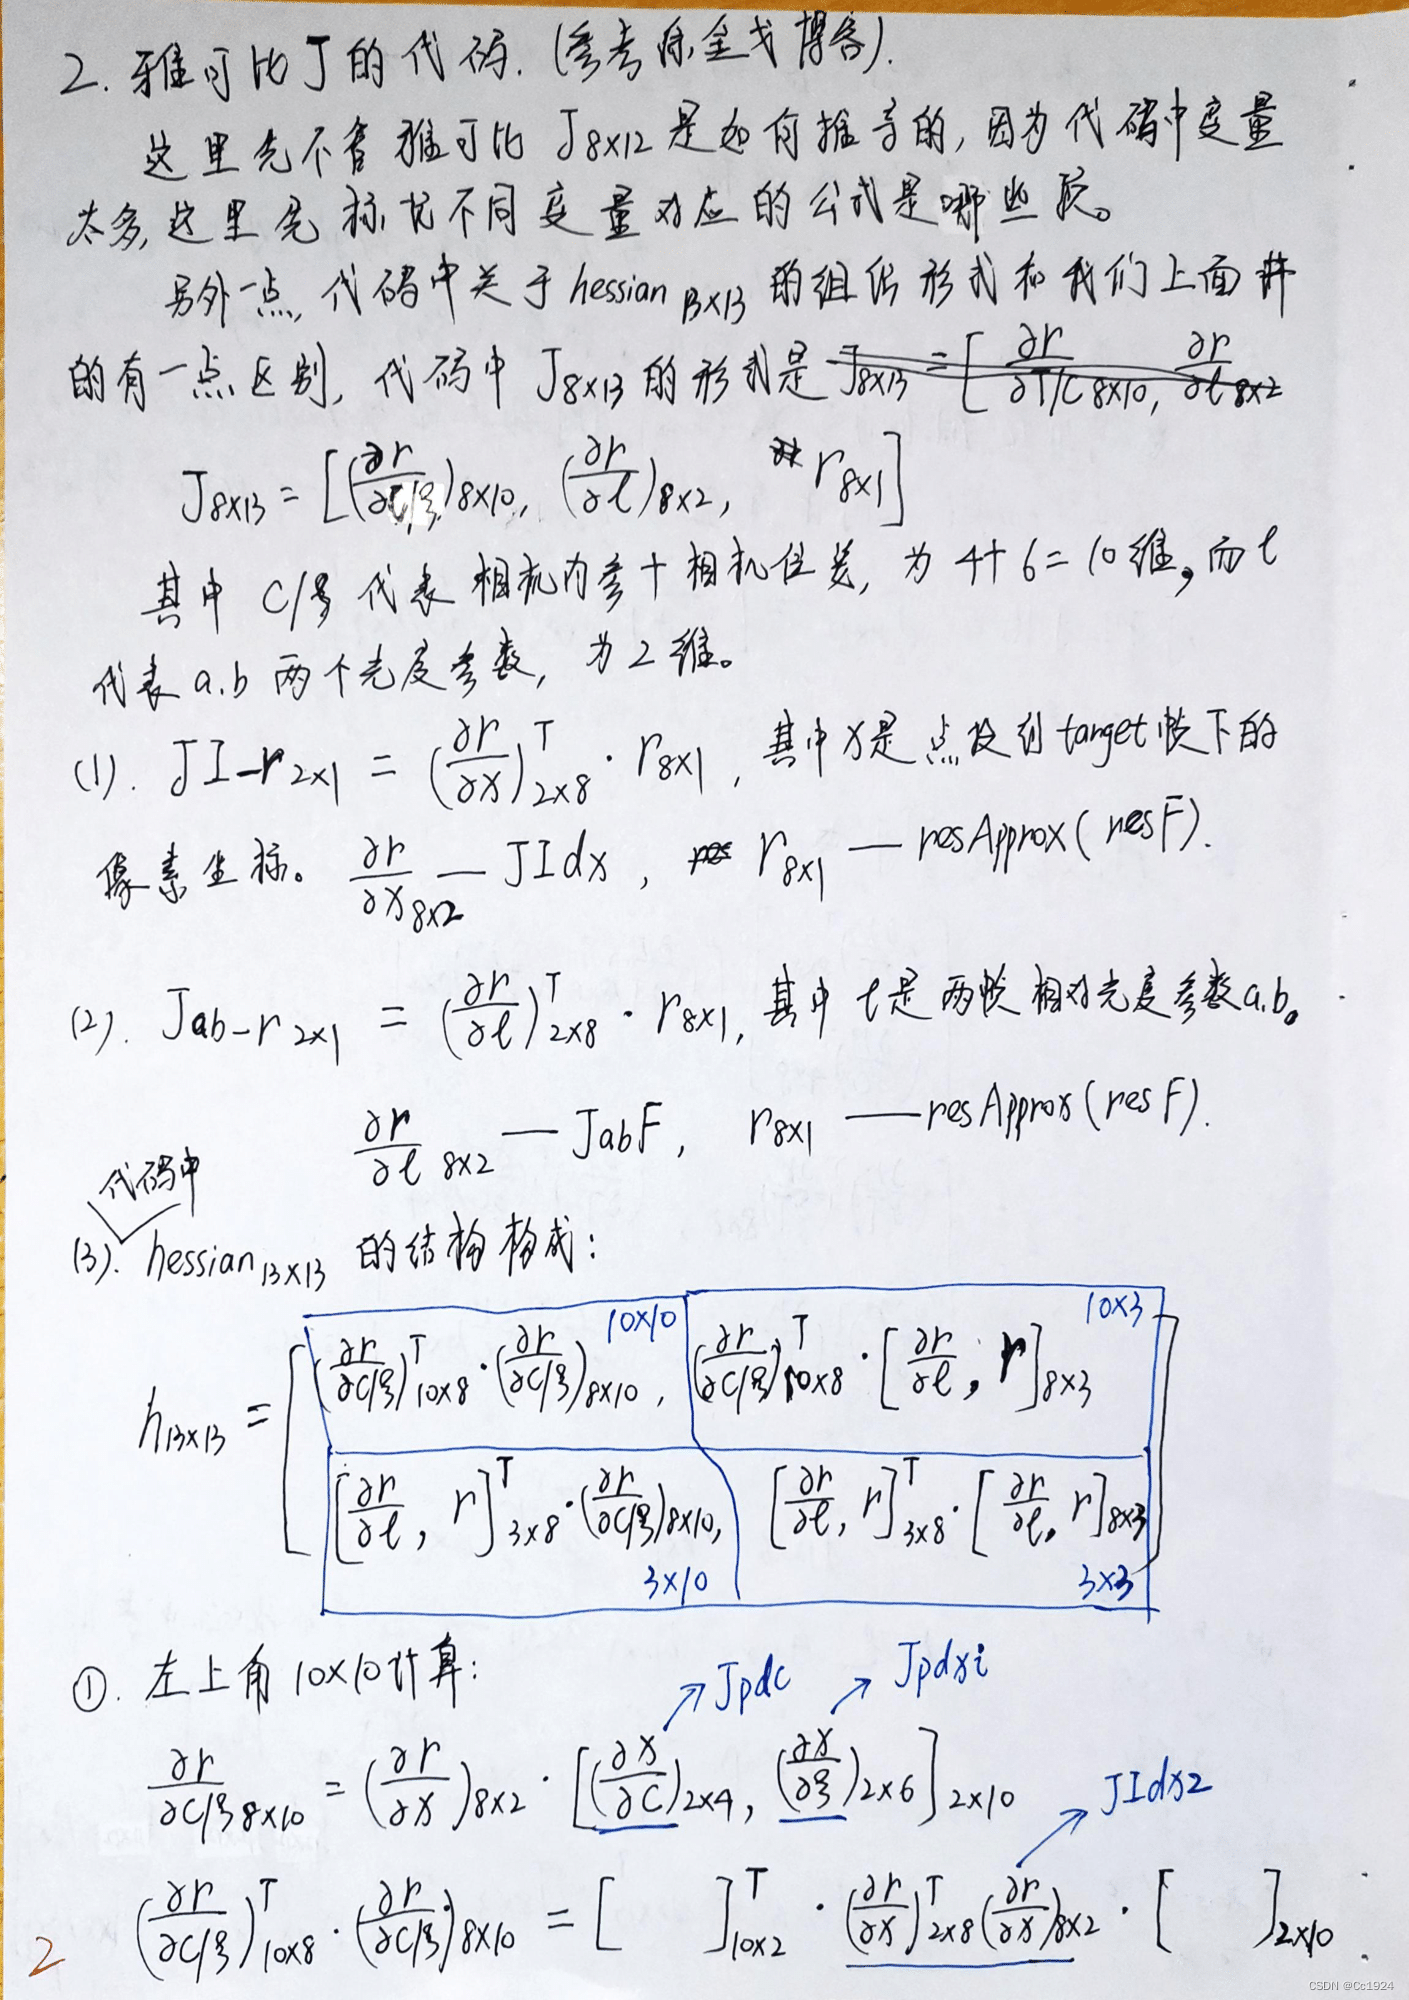 2. 雅可比J的代码. (参考涂金戈博客).
这里先不管雅可比 J8×12 是如何推导的, 因为代码中变量
太多, 这里先标记不同变量对应的公式是哪些段。
另外一点, 代码中关于hessian 13×13 的组织形式和我们上面讲
的有一点区别, 代码中 J8×13 的形式是 J8×13 = [ ∂r/∂T/C 8×10, ∂r/∂l 8×2
J8×13 = [ (∂r/∂C/ξ)8×10, (∂r/∂l)8×2, r8×1 ]
其中 C/ξ 代表相机内参+相机位姿, 为 4+6=10维, 而l
代表a.b两个光度参数, 为2维。
(1). JI-r 2×1 = (∂r/∂x)ᵀ2×8 · r8×1, 其中x是点投到target帧下的
像素坐标。 ∂r/∂x 8×2 — JIdx, r8×1 — resApprox(resF).
(2). Jab-r 2×1 = (∂r/∂l)ᵀ2×8 · r8×1, 其中l是两帧相对光度参数a.b。
∂r/∂l 8×2 — JabF, r8×1 — resApprox(resF).
代码中
(3). hessian 13×13 的结构构成:
10×10 10×3
h13×13 = [ (∂r/∂C/ξ)ᵀ10×8 · (∂r/∂C/ξ)8×10, (∂r/∂C/ξ)ᵀ10×8 · [∂r/∂l, r]8×3
[∂r/∂l, r]ᵀ3×8 · (∂r/∂C/ξ)8×10, [∂r/∂l, r]ᵀ3×8 · [∂r/∂l, r]8×3 ]
3×10 3×3
①. 左上角10×10计算:
Jpdc Jpdxi
∂r/∂C/ξ 8×10 = (∂r/∂x)8×2 · [ (∂x/∂C)2×4, (∂x/∂ξ)2×6 ]2×10
JIdx2
(∂r/∂C/ξ)ᵀ10×8 · (∂r/∂C/ξ)8×10 = [ ]ᵀ10×2 · (∂r/∂x)ᵀ2×8 (∂r/∂x)8×2 · [ ]2×10
2
CSDN @Cc1924